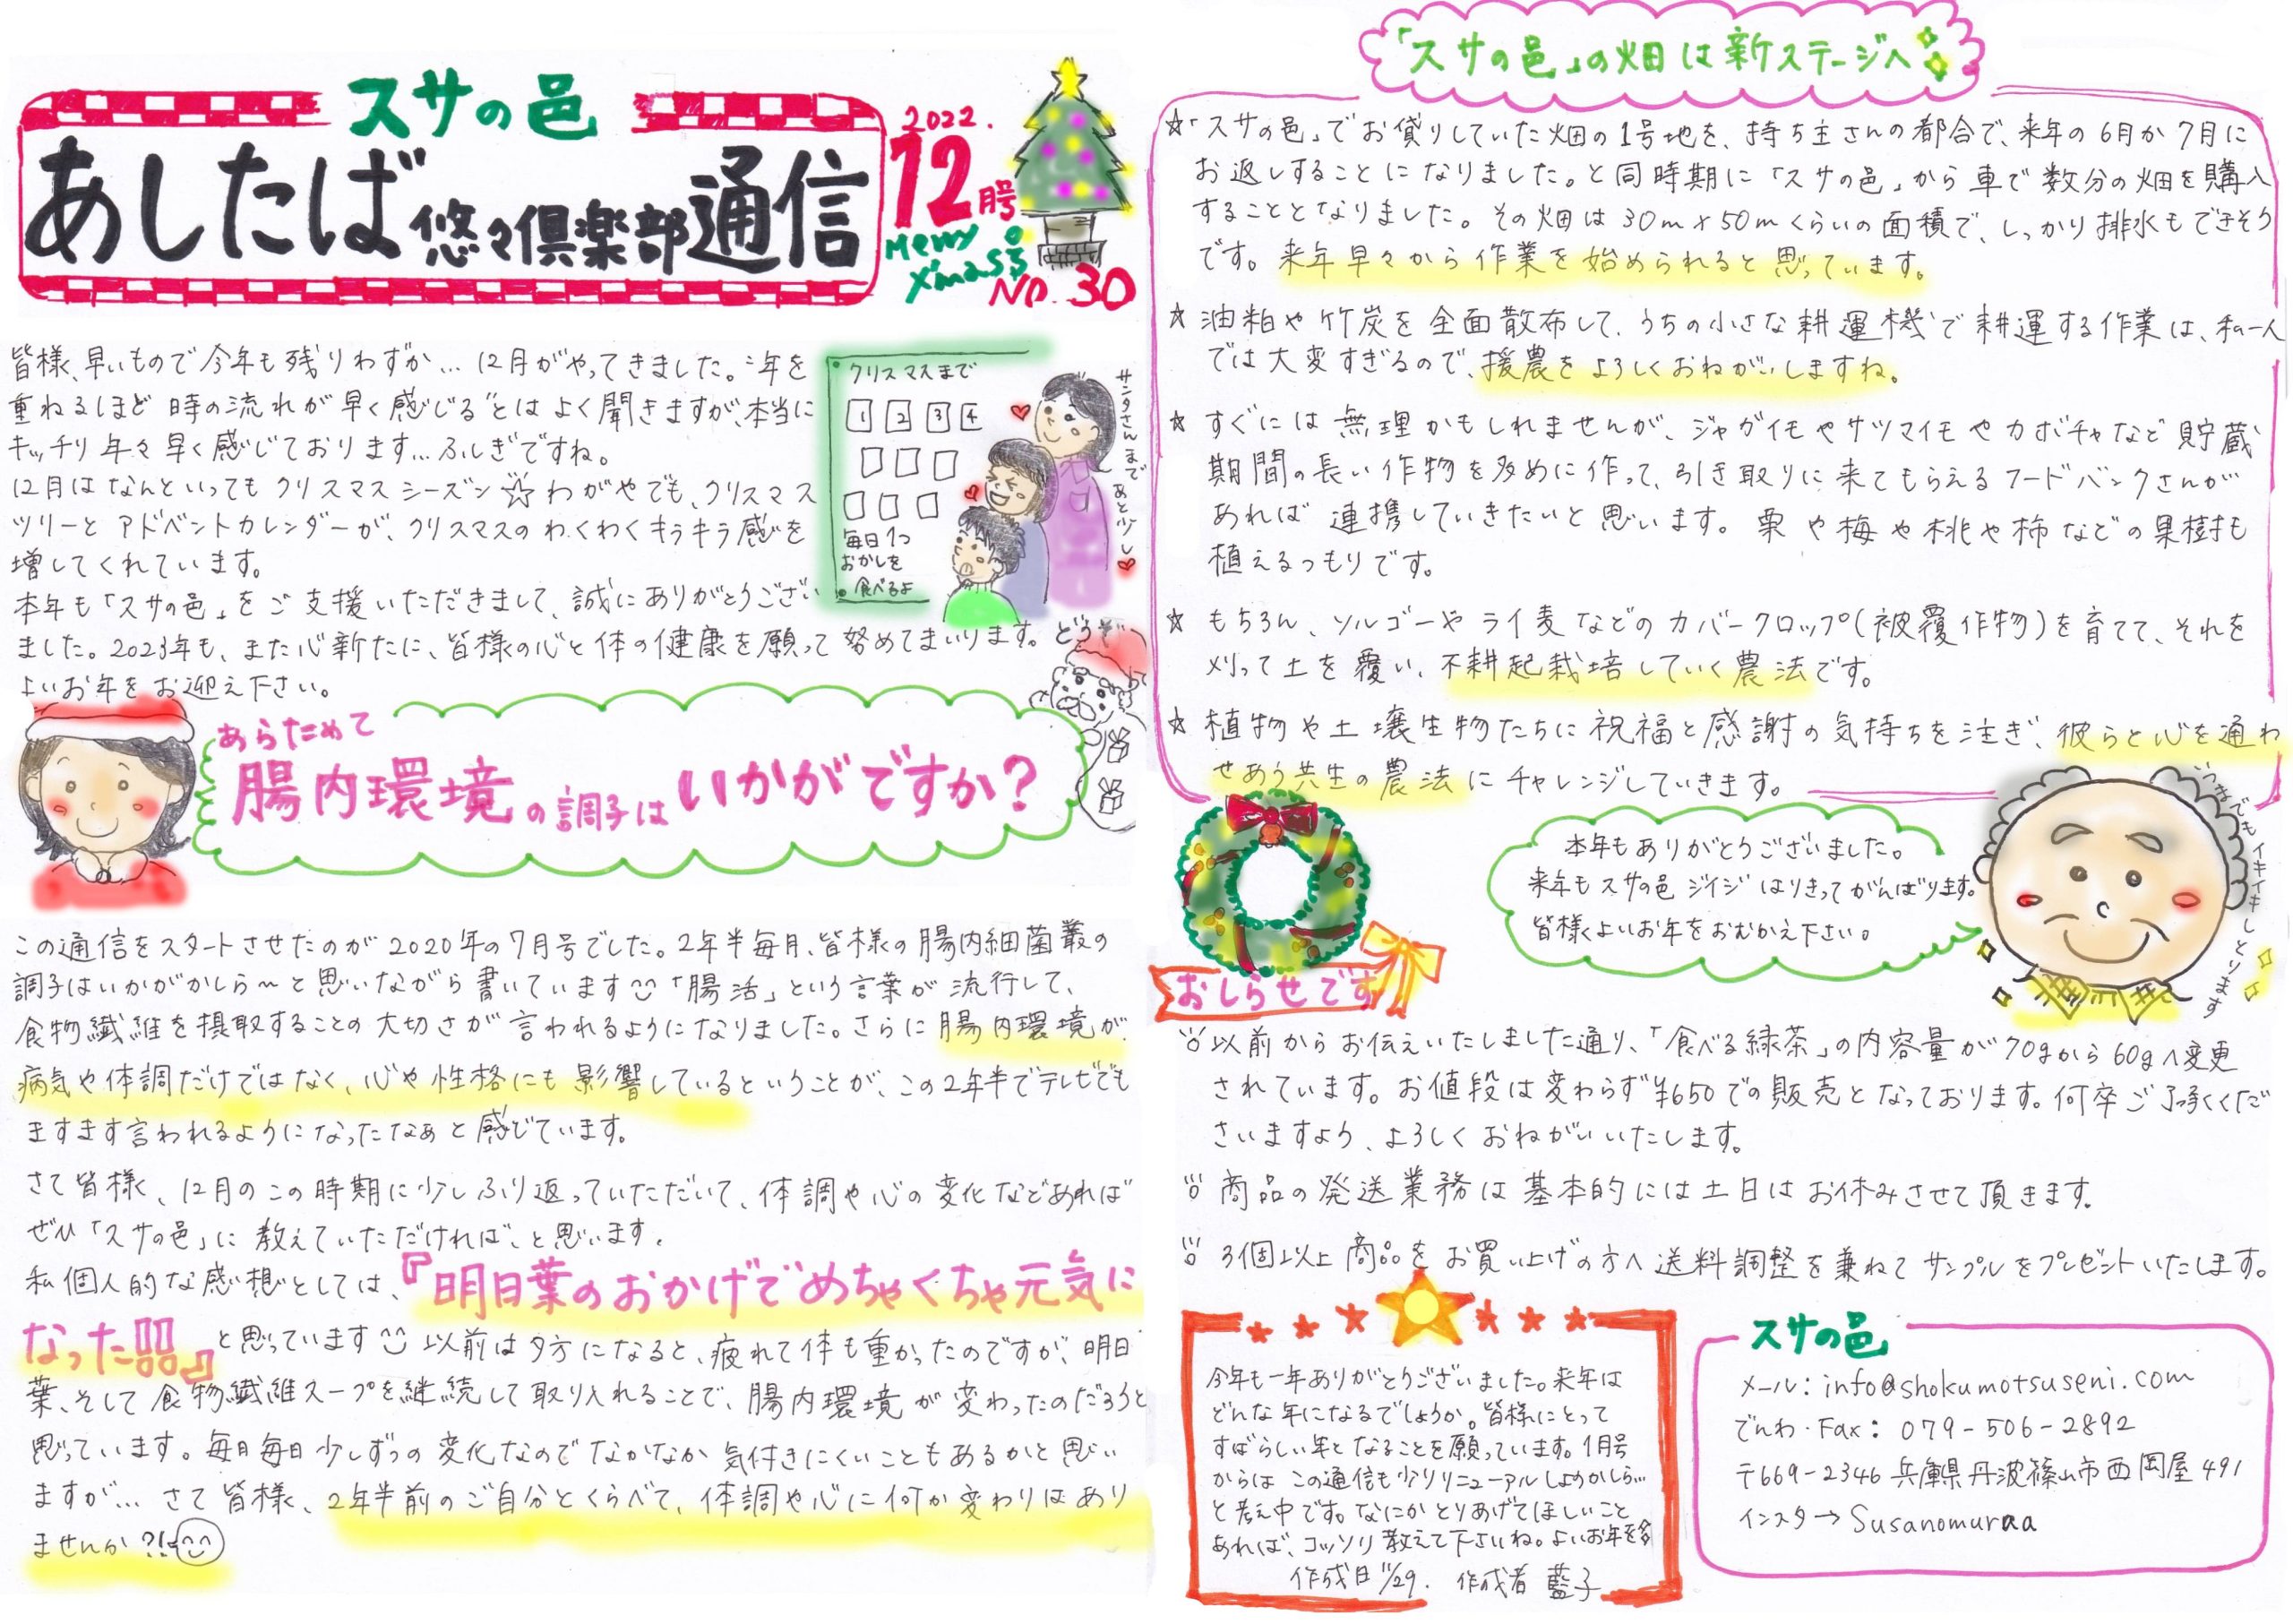 スサの邑
あしたば悠々倶楽部通信
2022.
12月号
Merry
X'mas
NO.30
皆様、早いもので今年も残りわずか…12月がやってきました。"年を
重ねるほど時の流れが早く感じる"とはよく聞きますが、本当に
キッチリ年々早く感じております…ふしぎですね。
12月はなんといってもクリスマスシーズン☆わがやでも、クリスマス
ツリーとアドベントカレンダーが、クリスマスのわくわくキラキラ感を
増してくれています。
本年も「スサの邑」をご支援いただきまして、誠にありがとうござい
ました。2023年も、また心新たに、皆様の心と体の健康を願って努めてまいります。どうぞ
よいお年をお迎え下さい。
クリスマスまで
1 2 3 4
毎日1つ
おかしを
食べるよ
サンタさんまであと少し
あらためて
腸内環境の調子はいかがですか?
この通信をスタートさせたのが2020年の7月号でした。2年半毎月、皆様の腸内細菌叢の
調子はいかがかしら〜と思いながら書いています「腸活」という言葉が流行して、
食物繊維を摂取することの大切さが言われるようになりました。さらに腸内環境が
病気や体調だけではなく、心や性格にも影響しているということが、この2年半でテレビでも
ますます言われるようになったなぁと感じています。
さて皆様、12月のこの時期に少しふり返っていただいて、体調や心の変化などあれば
ぜひ「スサの邑」に教えていただければ、と思います。
私個人的な感想としては、『明日葉のおかげでめちゃくちゃ元気に
なった!!!!』と思っています 以前は夕方になると、疲れて体も重かったのですが、明日
葉、そして食物繊維スープを継続して取り入れることで、腸内環境が変わったのだろうと
思っています。毎日毎日少しずつの変化なのでなかなか気付きにくいこともあるかと思い
ますが…さて皆様、2年半前のご自分とくらべて、体調や心に何か変わりはあり
ませんか?!
「スサの邑」の畑は新ステージへ
☆「スサの邑」でお貸りしていた畑の1号地を、持ち主さんの都合で、来年の6月か7月に
お返しすることになりました。と同時期に「スサの邑」から車で数分の畑を購入
することとなりました。その畑は30m×50mくらいの面積で、しっかり排水もできそう
です。来年早々から作業を始められると思っています。
☆ 油粕や竹炭を全面散布して、うちの小さな耕運機で耕運する作業は、私一人
では大変すぎるので、援農をよろしくおねがいしますね。
☆ すぐには無理かもしれませんが、ジャガイモやサツマイモやカボチャなど貯蔵
期間の長い作物を多めに作って、引き取りに来てもらえるフードバンクさんが
あれば連携していきたいと思います。栗や梅や桃や柿などの果樹も
植えるつもりです。
☆ もちろん、ソルゴーやライ麦などのカバークロップ(被覆作物)を育てて、それを
刈って土を覆い、不耕起栽培していく農法です。
☆ 植物や土壌生物たちに祝福と感謝の気持ちを注ぎ、彼らと心を通わ
せあう共生の農法にチャレンジしていきます。
本年もありがとうございました。
来年もスサの邑ジイジはりきってがんばります。
皆様よいお年をおむかえ下さい。
いつまでもイキイキしとります
おしらせです
以前からお伝えいたしました通り、「食べる緑茶」の内容量が70gから60gへ変更
されています。お値段は変わらず¥650での販売となっております。何卒ご了承くだ
さいますよう、よろしくおねがいいたします。
商品の発送業務は基本的には土日はお休みさせて頂きます。
3個以上商品をお買い上げの方へ送料調整を兼ねてサンプルをプレゼントいたします。
今年も一年ありがとうございました。来年は
どんな年になるでしょうか。皆様にとって
すばらしい年となることを願っています。1月号
からはこの通信も少しリニューアルしようかしら…
と考え中です。なにかとりあげてほしいこと
あれば、コッソリ教えて下さいね。よいお年を
作成日11/29. 作成者 藍子
スサの邑
メール：info@shokumotsuseni.com
でんわ・Fax：079-506-2892
〒669-2346 兵庫県丹波篠山市西岡屋491
インスタ→ Susanomuraa